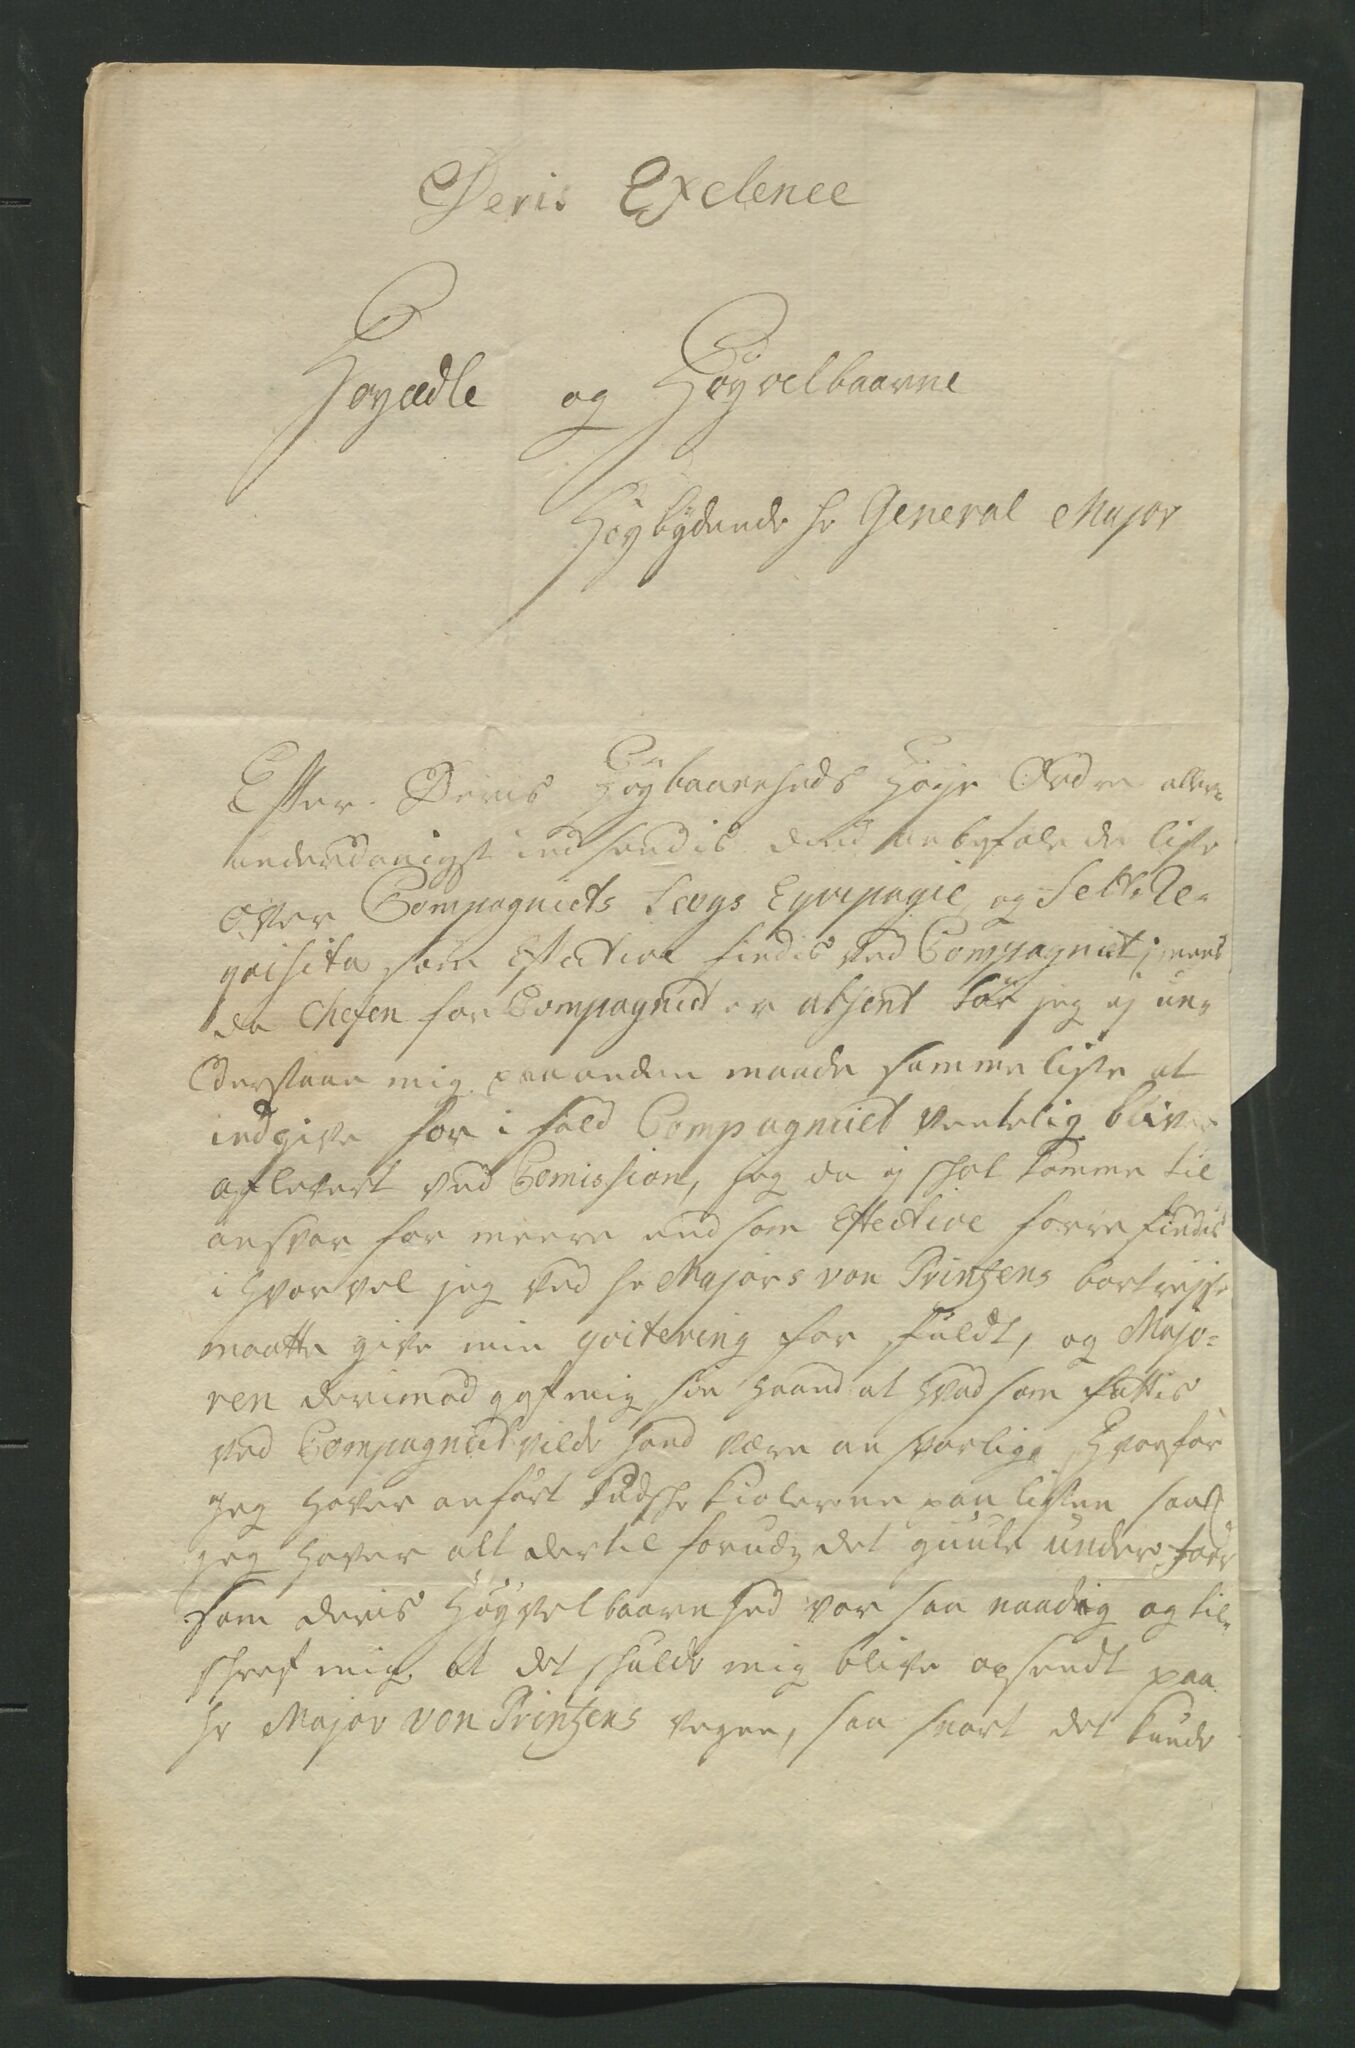 Deris Exelence
Høyædle og Høyvelbaarne
Høybydende hr General Major
Efter Deris Høybaarenheds Høye Ordre aller=
underdanigst indsendis den anbefalede liste
over Compagniets Krigs Eqvipagie og Felt Re=
qvisita som Effective findis ved Compagniet, mens
da Chefen for Compagniet er absent tør jeg ej un=
derstaae mig paa anden maade samme liste at
indgive for i fald Compagniet ventelig bliver
aflevert ved Comission, jeg da ej skal komme til
ansvar for meere end som Effective forre findis
ihvorvel jeg ved hr Majors von Printzens bortrejse
maatte give min qvitering for fuldt, og Majo=
ren derimod gaf mig sin haand at hvad som fattis
ved Compagniet vilde hand være ansvarlig Hvorfor
jeg haver anført Kudske Kiolerne paa listen saa
jeg haver alt dertil forud det guule underfoer
som deris Høyvelbaarenhed var saa naadig og til=
skref mig at det skulde mig blive opsendt paa
hr Major von Printzens vegne, saa snart det kunde